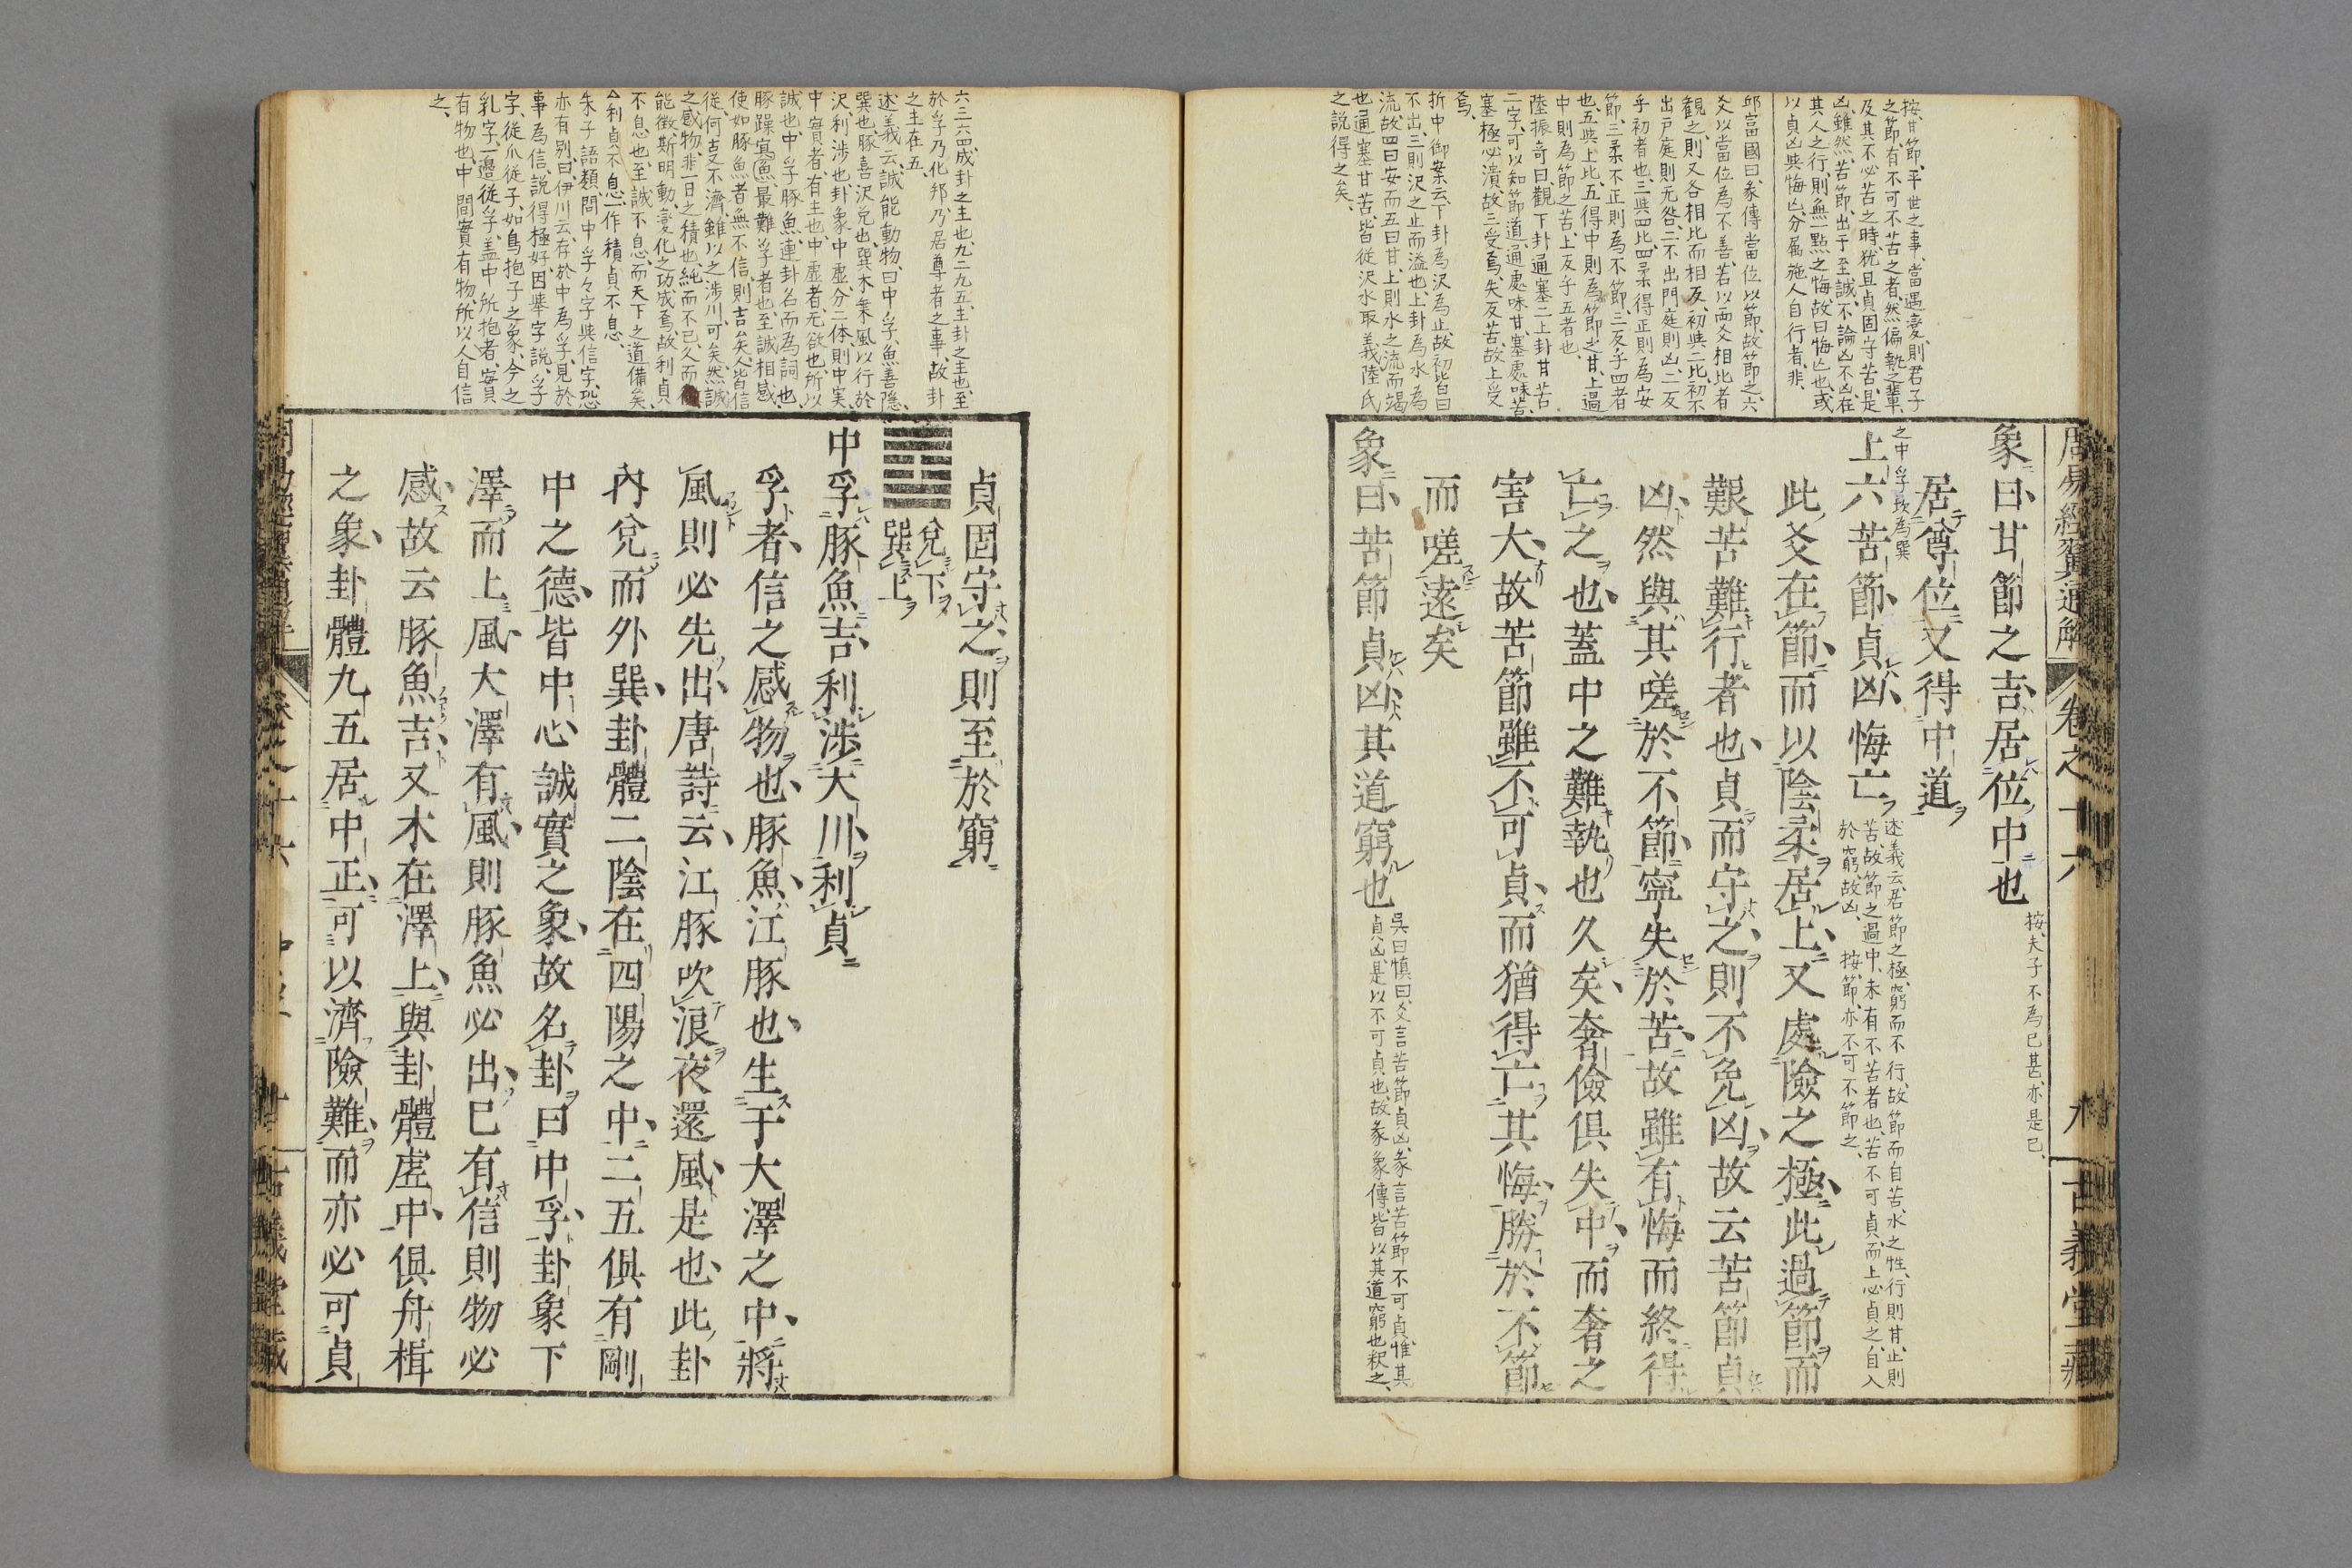 周易經翼通解
卷之十六
九
古義堂藏
按、甘節、平世之事、當遇變、則君子
之節、有不可不苦之者、然偏執之輩、
及其不必苦之時、犹且貞固守苦、是
凶、雖然、苦節、出于至誠、不論凶不凶、在
其人之行、則無一點之悔、故曰悔亡也、或
以貞凶與悔亡、分屬施人自行者、非、
邱富國曰、彖傳當位以節、故節之六
爻以當位為不善、若以兩爻相比者
觀之、則又各相比而相反、初與二比、初不
出戸庭則无咎、二不出門庭則凶、二反
乎初者也、三與四比、四柔得正則為安
節、三柔不正則為不節、三反乎四者
也、五與上比、五得中則為節之甘、上過
中則為節之苦、上反乎五者也、
陸振奇曰、觀下卦通塞二、上卦甘苦
二字、可以知節道、通處味甘、塞處味苦、
塞極必潰、故三受焉、失反苦、故上受
焉、
折中御案云、下卦為沢為止、故初皆曰
不出、三則沢之止而溢也、上卦為水為
流、故四曰安而五曰甘、上則水之流而竭
也、通塞甘苦、皆從沢水取義、陸氏
之説得之矣、
象曰、甘節之吉、居位中也
按、夫子不為已甚、亦是已、
居尊位又得中道
之中孚 ䷼為巽
上六苦節、貞凶、悔亡
述義云、居節之極、窮而不行、故節而自苦、水之性、行則甘、止則
苦、故節之過中、未有不苦者也、苦不可貞、而上必貞之、自入
於窮、故凶、 按、節、亦不可不節之、
此爻在節、而以陰柔居上、又處險之極、此過節而
艱苦難行者也、貞而守之、則不免凶、故云苦節貞
凶、然與其嗟於不節、寧失於苦、故雖有悔而終得
亡之也、蓋中之難執也久矣、奢儉俱失中、而奢之
害大、故苦節雖不可貞、而猶得亡其悔、勝於不節
而嗟遠矣
象曰、苦節貞凶、其道窮也
吳曰慎曰、爻言苦節貞凶、彖言苦節不可貞、惟其
貞凶、是以不可貞也、故彖象傳、皆以其道窮也釈之、
六三六四、成卦之主也、九二九五、主卦之主也、至
於孚乃化邦、乃居尊者之事、故卦
之主在五、
述義云、誠能動物、曰中孚、魚善隱、
巽也、豚喜沢、兌也、巽木乘風以行於
沢、利涉也、卦象中虛、分二体、則中実、
中實者、有主也、中虛者、无欲也、所以
誠也、中孚豚魚、連卦名而為詞也、
豚躁寘魚、最難孚者也、至誠相感、
使如豚魚者無不信、則吉矣、人皆信
從、何古又不濟、雖以之涉川可矣、然誠
之感物、非一日之積也、純而不已、久而後
能徴、斯明動變化之功成焉、故利貞
不息也、至誠不息、而天下之道備矣、
△利貞不息一作積貞不息、
朱子語類、問中孚々字與信字、恐
亦有別、曰、伊川云、存於中為孚、見於
事為信、説得極好、因舉字説、孚
字、從爪從子、如鳥抱子之象、今之
乳字、一邊從孚、蓋中所抱者、實
有物也、中間實有物、所以人自信
之、
貞固守之、則至於窮
兌下
巽上
中孚、豚魚吉、利涉大川、利貞
孚者、信之感物也、豚魚、江豚也、生于大澤之中、將
風則必先出、唐詩云、江豚吹浪夜還風、是也、此卦
內兌而外巽、卦體二陰在四陽之中、二五俱有剛
中之德、皆中心誠實之象、故名卦曰中孚、卦象下
澤而上風、大澤有風、則豚魚必出、已有信則物必
感、故云豚魚吉、又木在澤上、與卦體虛中、俱舟楫
之象、卦體九五居中正、可以濟險難、而亦必可貞